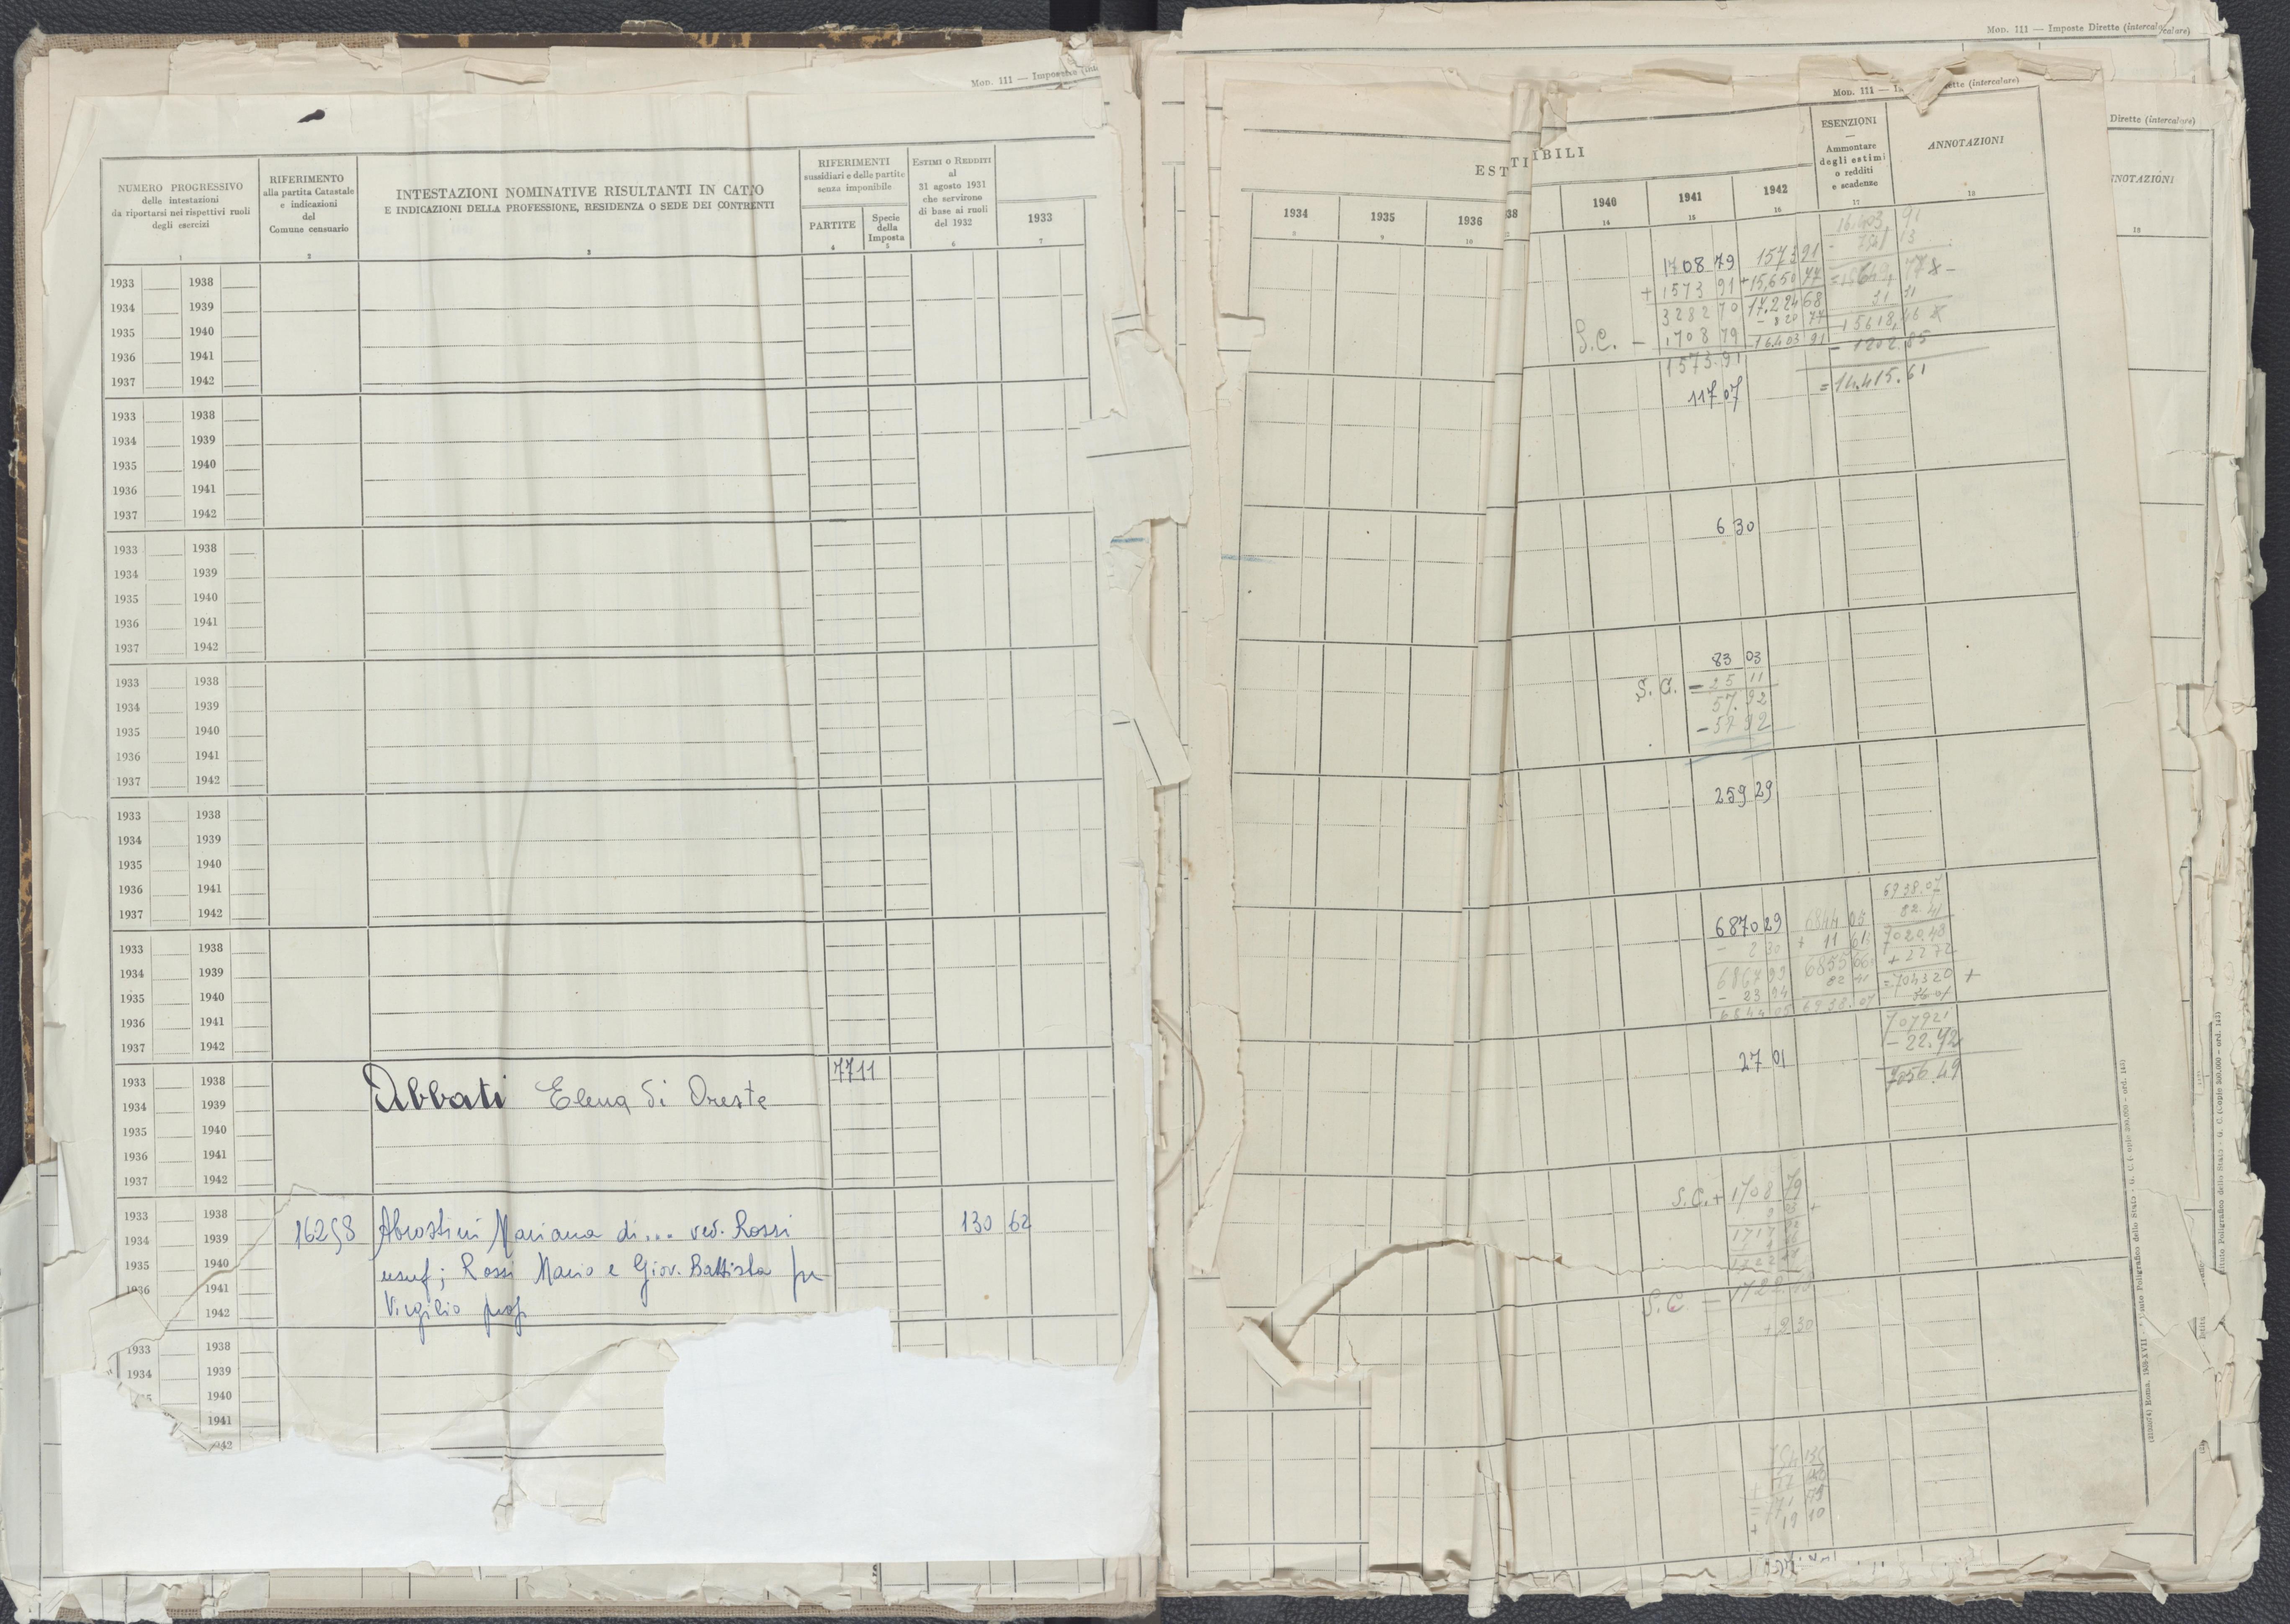 Mod. 111 — Imposte Dirette (intercalare)
NUMERO PROGRESSIVO
delle intestazioni
da riportarsi nei rispettivi ruoli
degli esercizi
1
RIFERIMENTO
alla partita Catastale
e indicazioni
del
Comune censuario
2
INTESTAZIONI NOMINATIVE RISULTANTI IN CAT
E INDICAZIONI DELLA PROFESSIONE, RESIDENZA O SEDE DEI
3
RIFERIMENTI
sussidiari e delle partite
senza imponibile
PARTITE
4
Specie
della
Imposta
5
ESTIMI O REDDITI
al
31 agosto 1931
che servirono
di base ai ruoli
del 1932
6
1933
7
1933 1938
1934 1939
1935 1940
1936 1941
1937 1942
1933 1938
1934 1939
1935 1940
1936 1941
1937 1942
1933 1938
1934 1939
1935 1940
1936 1941
1937 1942
1933 1938
1934 1939
1935 1940
1936 1941
1937 1942
1933 1938
1934 1939
1935 1940
1936 1941
1937 1942
1933 1938
1934 1939
1935 1940
1936 1941
1937 1942
1933 1938 7711
1934 1939 Abbati Elena di Oreste
1935 1940
1936 1941
1937 1942
1933 1938
1934 1939 Mariana di... ved. Rossi 130 62
1935 1940 usuf; Rossi Mario e Giov. Battista fu
1936 1941
1942 Virgilio prop
1933 1938
1934 1939
1940
1941
Mod. 111 — Imposte Dirette (intercalare)
Dirette (intercalare)
ESTI IBILI
1934
8
1935
9
1936
10
1940
14
1941
15
1942
16
ESENZIONI
—
Ammontare
degli estimi
o redditi
e scadenze
17
ANNOTAZIONI
18
NOTAZIONI
18
1708 79 1573 91
+ 1573 91 + 15,650 77
3282 70 17.224 68
S.C. - 1708 79 - 820 77
1573.91 16403 91
16.403 91
15618,46
- 1202.85
= 14.415.61
117 07
6 30
83 03
S.C. - 25 11
57.92
- 57 92
259 29
6870 29 6844 05 6938.07
- 2 30 + 11 61 82.41
6867 99 6855 66 7020.48
- 23 94 82 41 + 22 72
6844 05 6938.07 = 7043 20 +
36 01
7079 21
- 22.72
7056.49
27 01
S.C. + 1708 79
S.C. -
+ 2 30
+ 19 10